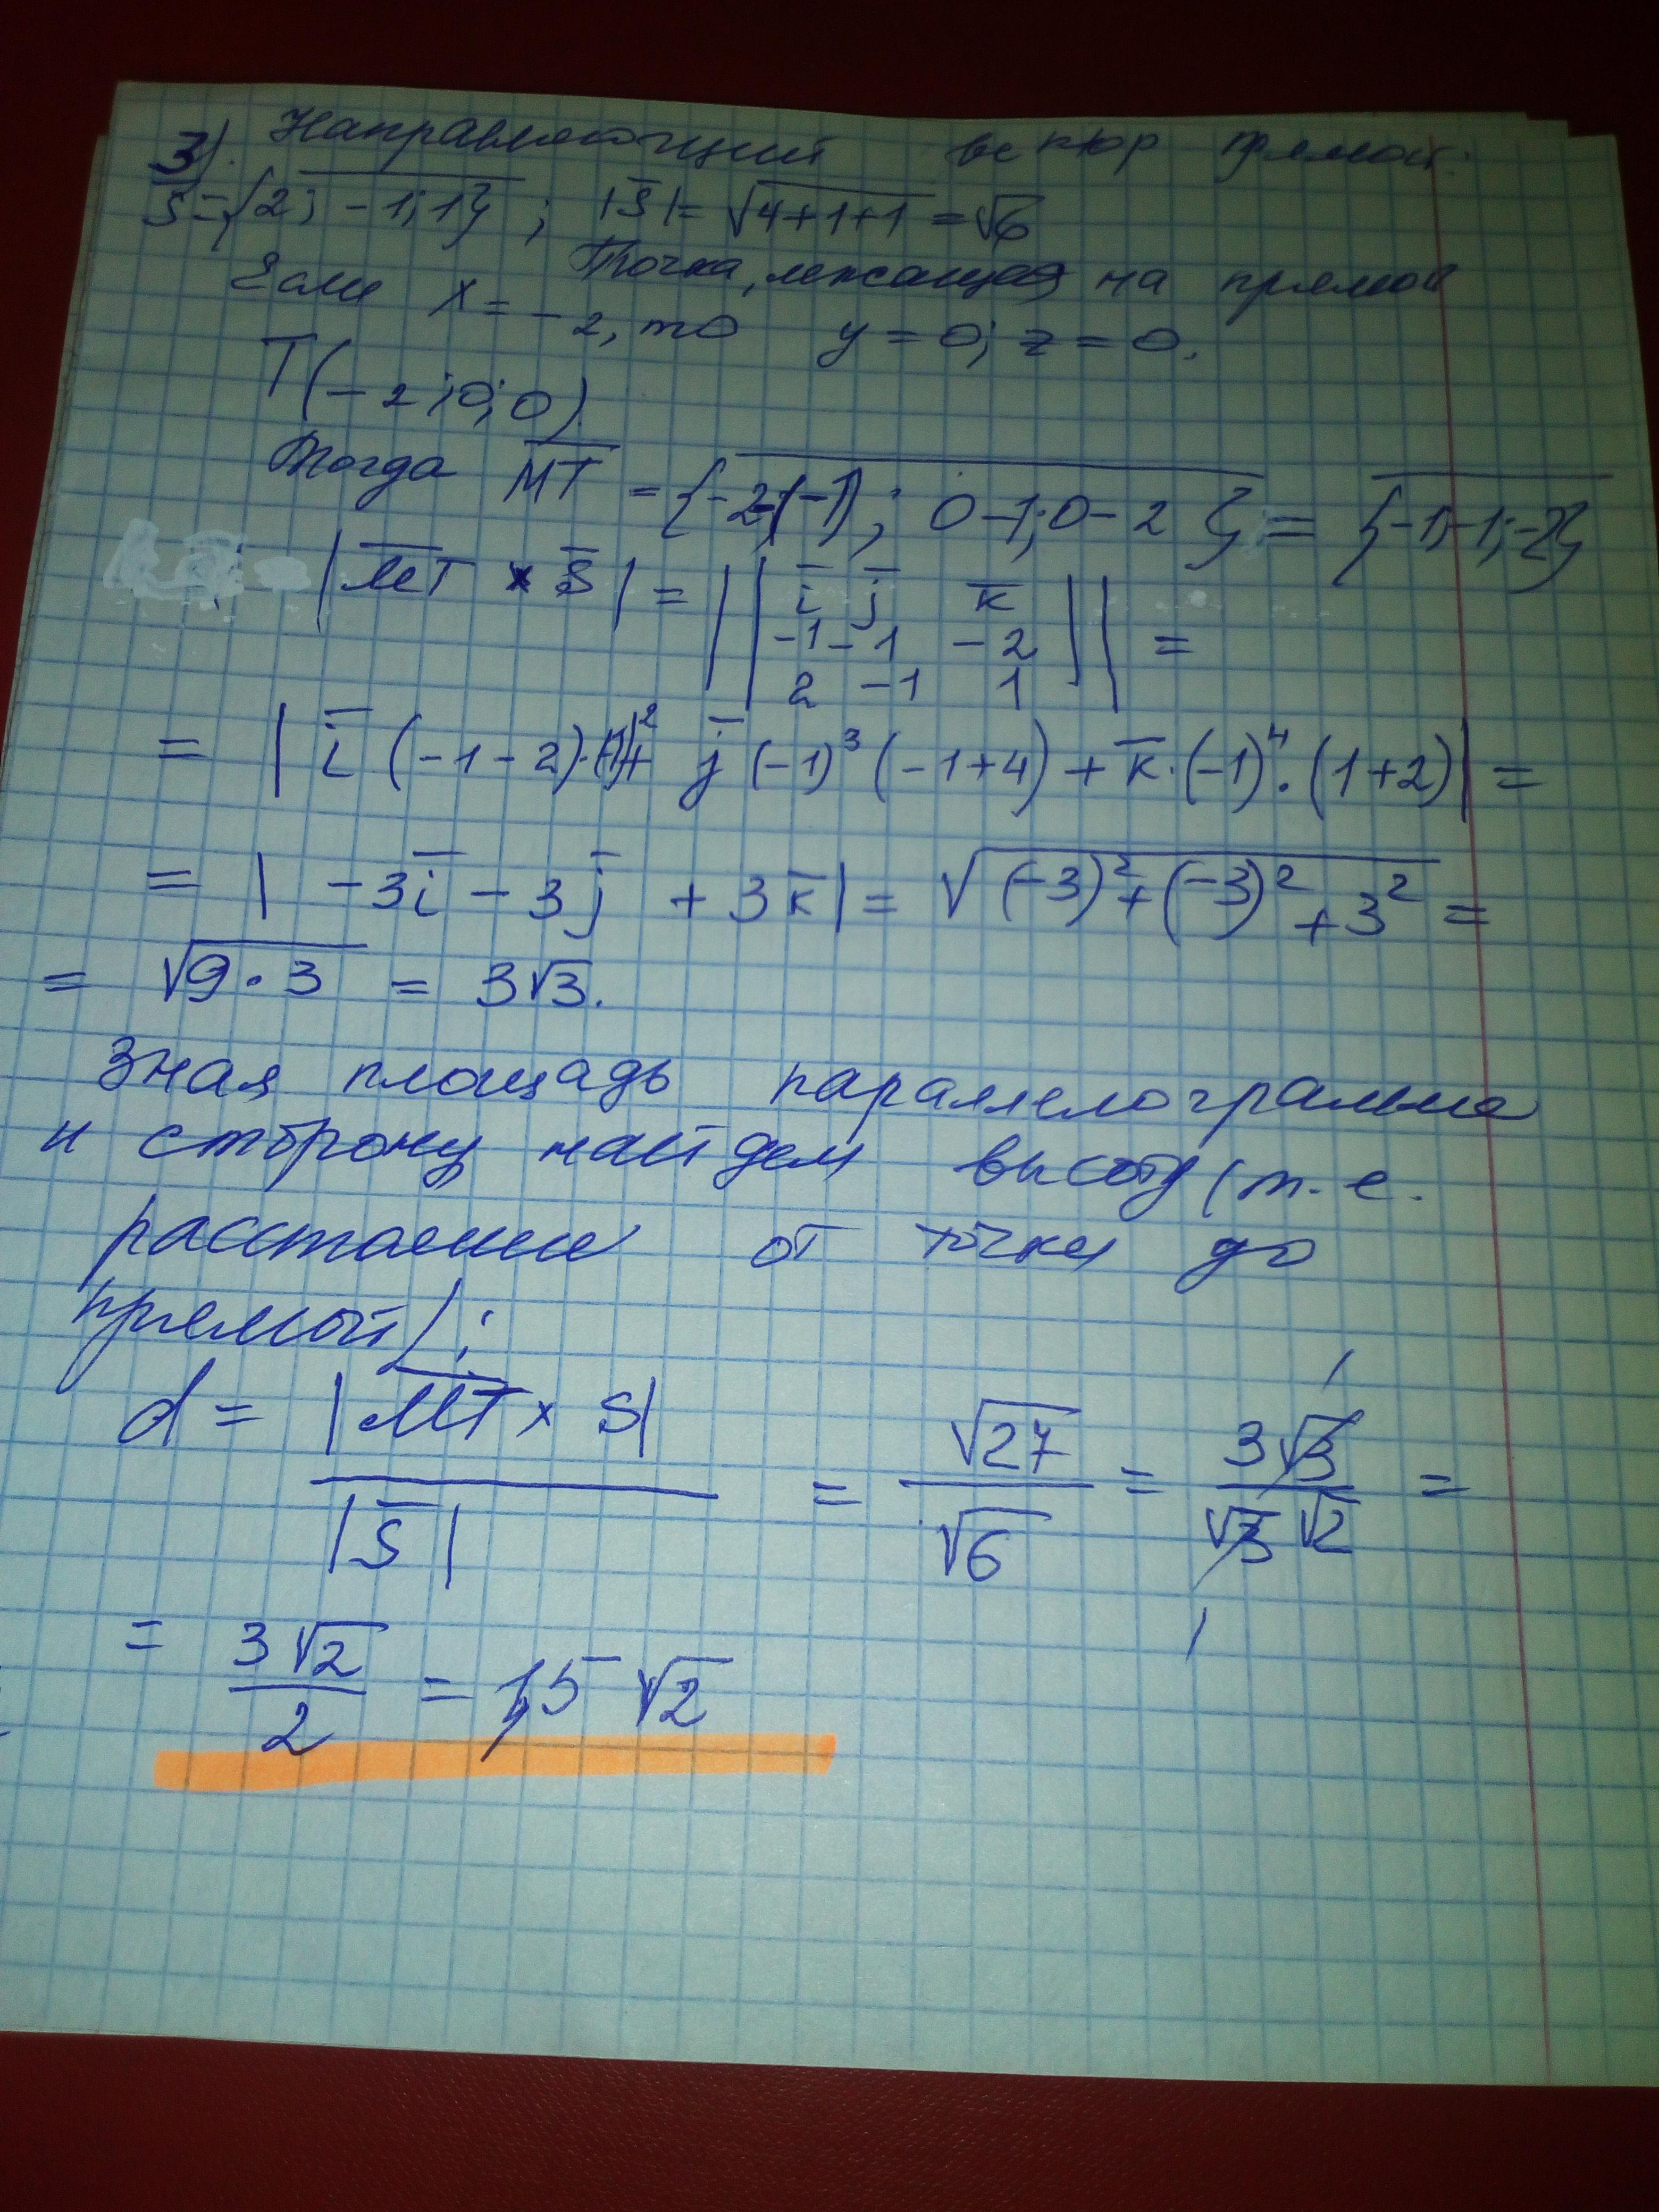 3). Направляющий вектор прямой:
s̅ = {2; -1; 1}; |s̅| = √(4+1+1) = √6
Точка, лежащая на прямой
Если x = -2, то y = 0; z = 0.
T(-2; 0; 0).
Тогда M̅T̅ = {-2-(-1); 0-1; 0-2} = {-1; -1; -2}
|M̅T̅ × s̅| = || i̅ j̅ k̅
-1 -1 -2 || =
2 -1 1
= | i̅ (-1-2)·(-1)² + j̅ (-1)³ (-1+4) + k̅·(-1)⁴·(1+2)| =
= | -3i̅ - 3j̅ + 3k̅| = √((-3)² + (-3)² + 3²) =
= √(9·3) = 3√3.
Зная площадь параллелограмма
и сторону найдем высоту (т.е.
расстояние от точки до
прямой):
d = |M̅T̅ × s| / |s̅| = √27 / √6 = 3√3 / √3 √2 =
= 3√2 / 2 = 1,5 √2